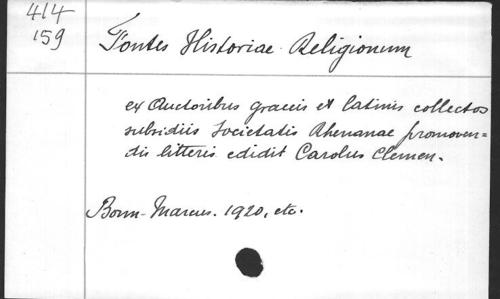 414
159
Fontes Historiae Religionum
ex Auctoribus graecis et latinis collectos
subsidiis Societatis Rhenanae promoven=
dis litteris edidit Carolus Clemen.
Bonn-Marcus. 1920, etc.